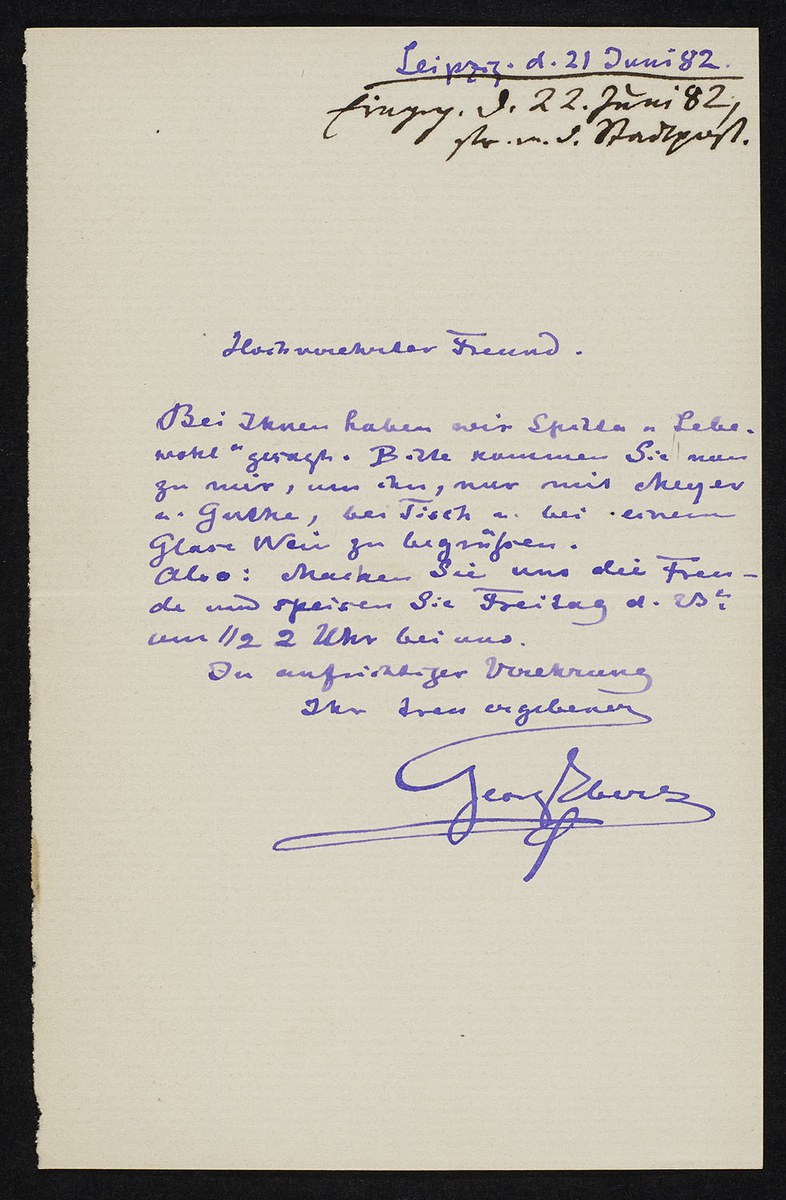 Leipzig. d. 21 Juni 82.
Eingeg. d. 22. Juni 82,
d. Stadtpost.
Hochverehrter Freund.
Bei Ihnen haben wir Spitta „Lebe-
wohl" gesagt. Bitte kommen Sie nun
zu mir, um ihn, nur mit Meyer
u. Guthe, bei Tisch u. bei einem
Glase Wein zu begrüßen.
Also: Machen Sie uns die Freu-
de und speisen Sie Freitag d.
um 1/2 2 Uhr bei uns.
In aufrichtiger Verehrung
Ihr treu ergebener
Georg Ebers